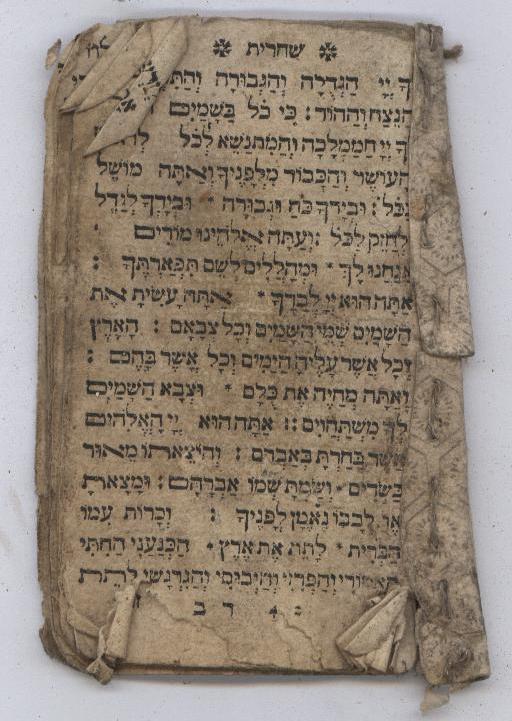 שחרית
ךָ יְיָ הַגְּדֻלָּה וְהַגְּבוּרָה
הַנֵּצַח וְהַהוֹד : כִּי כֹל בַּשָּׁמַיִם
לְךָ יְיָ הַמַּמְלָכָה וְהַמִּתְנַשֵּׂא לְכֹל
הָעוֹשֶׁר וְהַכָּבוֹד מִלְּפָנֶיךָ וְאַתָּה מוֹשֵׁל
בַּכֹּל : וּבְיָדְךָ כֹּחַ וּגְבוּרָה * וּבְיָדְךָ לְגַדֵּל
וּלְחַזֵּק לַכֹּל : וְעַתָּה אֱלֹהֵינוּ מוֹדִים
אֲנַחְנוּ לָךְ * וּמְהַלְלִים לְשֵׁם תִּפְאַרְתֶּךָ :
אַתָּה הוּא יְיָ לְבַדֶּךָ * אַתָּה עָשִׂיתָ אֶת
הַשָּׁמַיִם שְׁמֵי הַשָּׁמַיִם וְכָל צְבָאָם : הָאָרֶץ
וְכָל אֲשֶׁר עָלֶיהָ הַיַּמִּים וְכָל אֲשֶׁר בָּהֶם :
וְאַתָּה מְחַיֶּה אֶת כֻּלָּם * וּצְבָא הַשָּׁמַיִם
לְךָ מִשְׁתַּחֲוִים :: אַתָּה הוּא יְיָ הָאֱלֹהִים
אֲשֶׁר בָּחַרְתָּ בְּאַבְרָם : וְהוֹצֵאתוֹ מֵאוּר
כַּשְׂדִּים * וְשַׂמְתָּ שְׁמוֹ אַבְרָהָם : וּמָצָאתָ
אֶת לְבָבוֹ נֶאֱמָן לְפָנֶיךָ : וְכָרוֹת עִמּוֹ
הַבְּרִית * לָתֵת אֶת אֶרֶץ * הַכְּנַעֲנִי הַחִתִּי
הָאֱמוֹרִי וְהַפְּרִזִּי וְהַיְבוּסִי וְהַגִּרְגָּשִׁי לָתֵת
ד ב